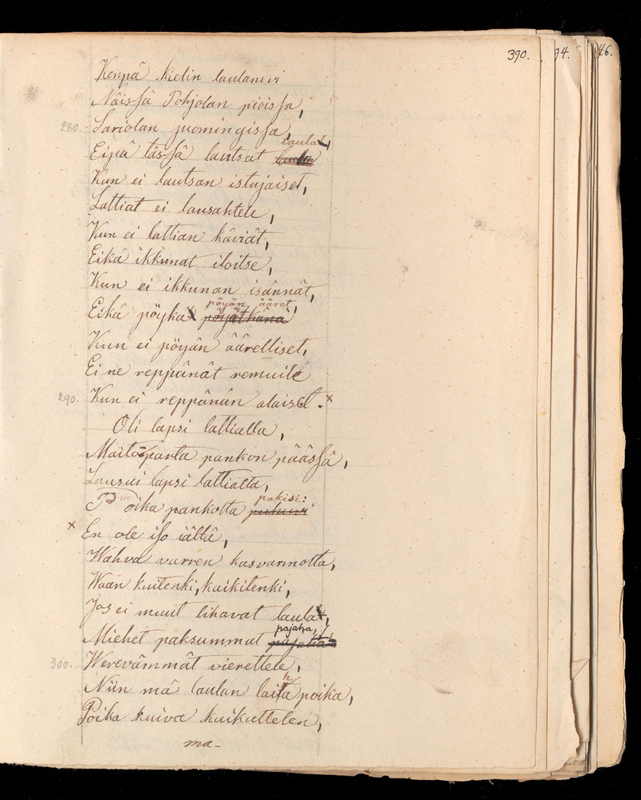 390. 94. 46.
Kenpä kielin laulanevi
Näissä Pohjolan pioissa,
280. Sariolan juomingissa,
Eipä tässä lautsat laula,
Kun ei lautsan istujaiset,
Lattiat ei lausahtele,
Kun ei lattian käviät,
Eikä ikkunat iloitse,
Kun ei ikkunan isännät,
Eikä pöykä pöyän ääret,
Kun ei pöyän äärelliset,
Ei ne reppänät remuile
290. Kun ei reppänän alaiset. x
Oli lapsi lattialla,
Maitoparta pankon päässä,
Lausui lapsi lattialla,
Poika pankolta pakisi:
x En ole iso iältä,
Wahva varren kasvannolta,
Waan kuitenki, kaikitenki,
Jos ei muut lihavat laula,
Miehet paksummat pajaha,
300. Werevämmät vierettele,
Niin mä laulan laiha poika,
Poika kuiva kuikuttelen,
ma-